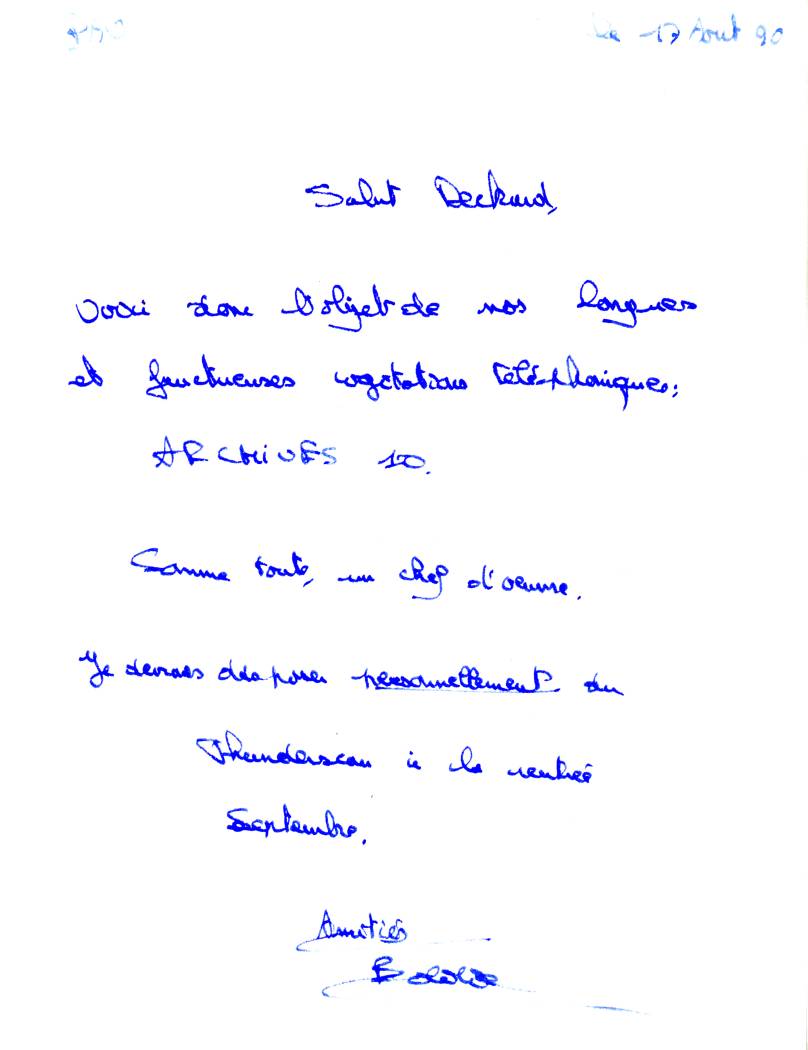 Le 17 Aout 90
Salut Deckard,
Voici donc l'objet de nos longues
et fructueuses cogitations téléphoniques;
ARCHIVES 10.
Somme toute, un chef d'oeuvre.
Je devrais disposer personnellement du
Thunderscan à la rentrée
Septembre.
Amitiés